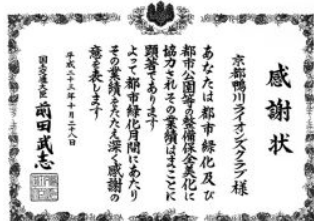 感謝状
京都鴨川ライオンズクラブ様
あなたは都市緑化及び
都市公園等の整備保全美化に
協力されその業績はまことに
顕著であります
よって都市緑化月間にあたり
その業績をたたえ深く感謝の
意を表します
平成二十三年十月二十八日
国土交通大臣 前田武志